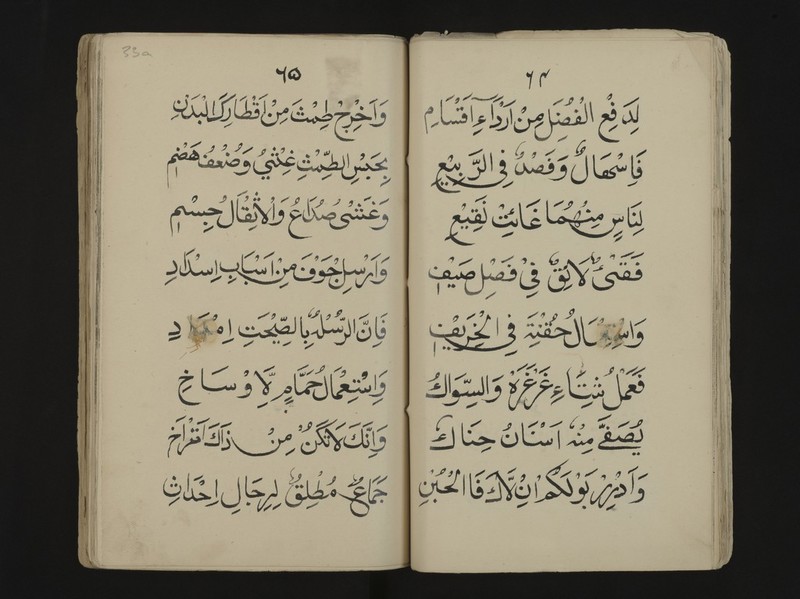 ٦٤
لِدَفْعِ الْفُضْلِ مِنْ اَرْدَاءِ اَقْسَامِ
فَاِسْهَالٌ وَفَصْدٌ فِي الرَّبِيْعِ
لِنَاسٍ مِنْهُمَا غَائِتْ نَقِيْعِ
فَقَئٌ لَائِقٌ فِيْ فَصْلِ صَيْفِ
وَاسْتِعْمَالُ حُقْنَةَ فِي الْخَرِيْفِ
فَعَمَلُ شِتَاءِ غَرْغَرَةْ وَالسِّوَاكُ
يُصَفّٰى مِنْهُ اَسْنَانُ حِنَاكُ
وَاَدْرِرْ بَوْلَكُمْ اِنْ لَاكَ فَا الْحُبْنِ
33a
٦٥
وَاَخْرِجْ طِمْثَ مِنْ اَقْطَارِكَ الْبَدَنِ
بِحَبْسِ الطِّمْثِ غِثْيٌ وَضُعْفُ هَضْمِ
وَغَشْىٌ صُدَاعُ وَالْاَثْقَالُ جِسْمِ
وَاَرْسِلْ جَوْفَ مِنْ اَسْبَابِ اِسْدَادِ
فَاِنَّ الرُّسْلَهْ بِالصِّحَتِ دِ
وَاِسْتِعْمَالُ حَمَّامٍ لِاَوْسَاخِ
وَاِنَّكَ لَاتَكُنْ مِنْ ذَاكَ اَفْرَاخِ
جَمَاعٌ مُطْلِقٌ لِرِجَالِ اِحْدَاثِ